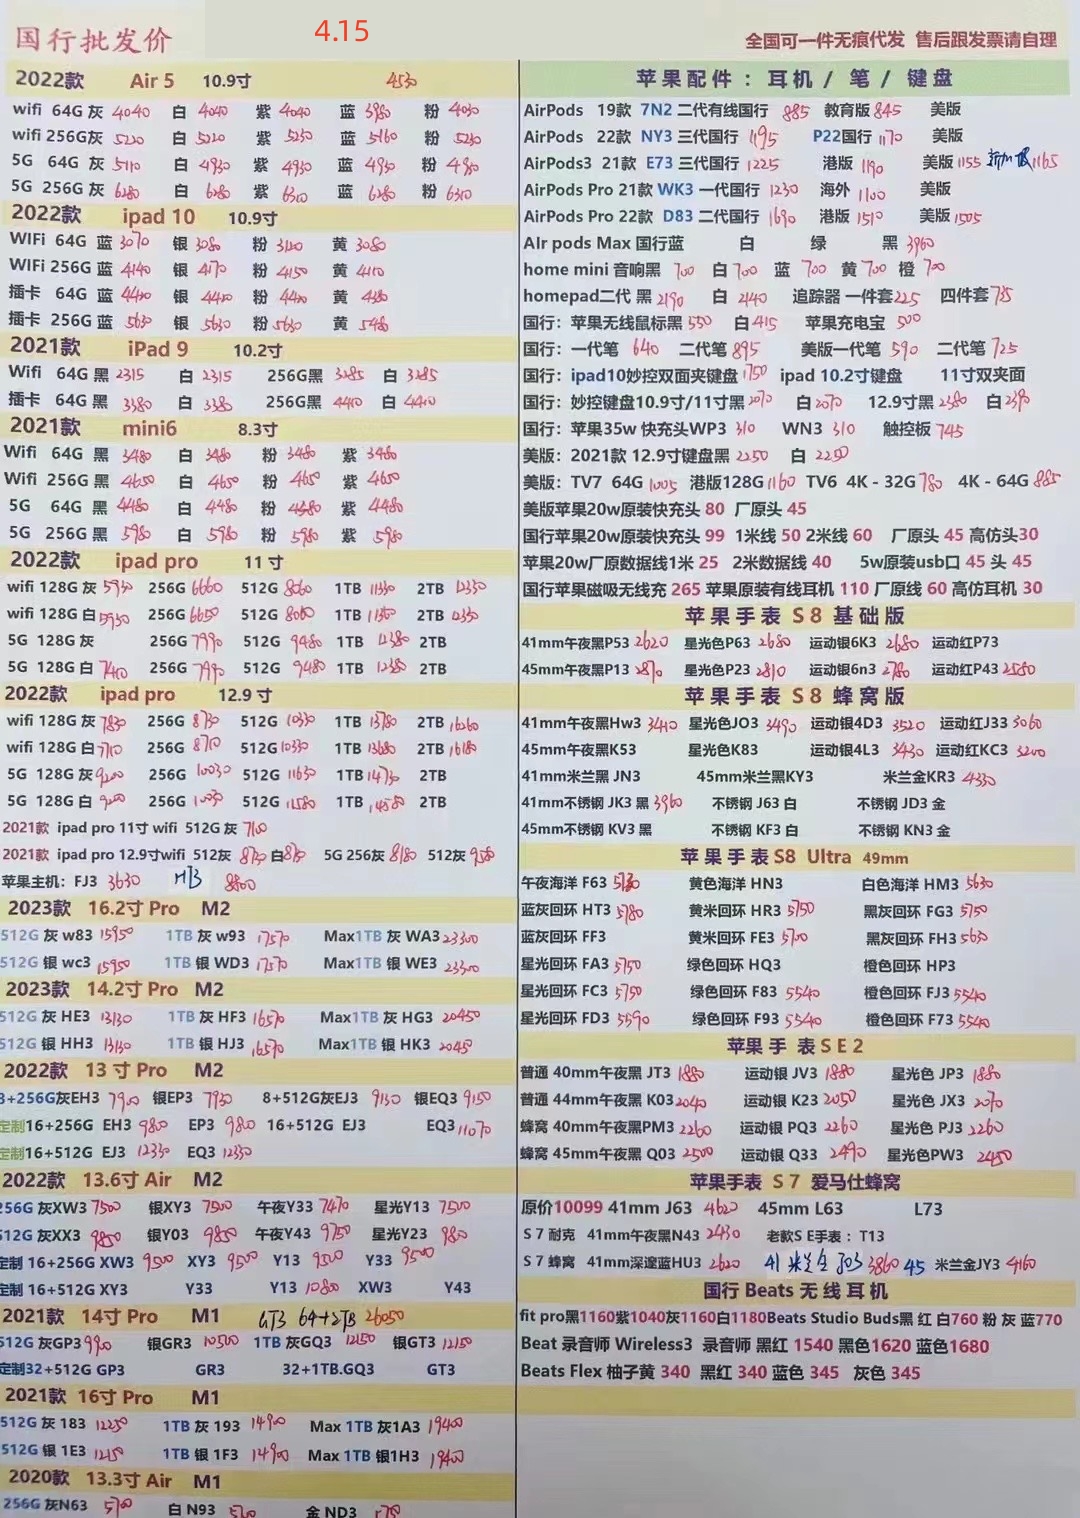 国行批发价
4.15
全国可一件无痕代发 售后跟发票请自理
2022款 Air 5 10.9寸 4530
wifi 64G 灰 4040 白 4040 紫 4040 蓝 3980 粉 4030
wifi 256G 灰 5220 白 5220 紫 5250 蓝 5160 粉 5230
5G 64G 灰 5110 白 4930 紫 4930 蓝 4930 粉 4980
5G 256G 灰 6280 白 6280 紫 6310 蓝 6280 粉 6310
2022款 ipad 10 10.9寸
WIFi 64G 蓝 3070 银 3080 粉 3100 黄 3080
WIFi 256G 蓝 4140 银 4170 粉 4150 黄 4110
插卡 64G 蓝 4400 银 4410 粉 4400 黄 4380
插卡 256G 蓝 5630 银 5630 粉 5630 黄 5480
2021款 iPad 9 10.2寸
Wifi 64G 黑 2315 白 2315 256G黑 3285 白 3285
插卡 64G 黑 3380 白 3380 256G黑 4410 白 4410
2021款 mini6 8.3寸
Wifi 64G 黑 3480 白 3480 粉 3480 紫 3480
Wifi 256G 黑 4650 白 4650 粉 4650 紫 4650
5G 64G 黑 4480 白 4480 粉 4380 紫 4480
5G 256G 黑 5980 白 5980 粉 5980 紫 5980
2022款 ipad pro 11 寸
wifi 128G 灰 5950 256G 6660 512G 8060 1TB 11350 2TB 12350
wifi 128G 白 5950 256G 6650 512G 8060 1TB 11350 2TB 12350
5G 128G 灰 256G 7990 512G 9480 1TB 12380 2TB
5G 128G 白 7400 256G 7990 512G 9480 1TB 12380 2TB
2022款 ipad pro 12.9 寸
wifi 128G 灰 7830 256G 8730 512G 10330 1TB 13780 2TB 16260
wifi 128G 白 7710 256G 8710 512G 10330 1TB 13680 2TB 16180
5G 128G 灰 9200 256G 10030 512G 11630 1TB 14730 2TB
5G 128G 白 9200 256G 10030 512G 11580 1TB 14580 2TB
2021款 ipad pro 11寸 wifi 512G 灰 7100
2021款 ipad pro 12.9寸wifi 512灰 8730 白 8730 5G 256灰 8180 512灰 9280
苹果主机: FJ3 3630 H73 8800
2023款 16.2寸 Pro M2
512G 灰 w83 15950 1TB 灰 w93 17570 Max1TB 灰 WA3 23300
512G 银 wc3 15950 1TB 银 WD3 17570 Max1TB 银 WE3 23300
2023款 14.2寸 Pro M2
512G 灰 HE3 13130 1TB 灰 HF3 16570 Max1TB 灰 HG3 20450
512G 银 HH3 13130 1TB 银 HJ3 16570 Max1TB 银 HK3 2045
2022款 13 寸 Pro M2
8+256G灰EH3 7900 银EP3 7930 8+512G灰EJ3 9130 银EQ3 9150
定制16+256G EH3 9800 EP3 9800 16+512G EJ3 EQ3 11070
定制16+512G EJ3 12330 EQ3 12330
2022款 13.6寸 Air M2
256G 灰XW3 7500 银XY3 7500 午夜Y33 7470 星光Y13 7500
512G 灰XX3 9850 银Y03 9850 午夜Y43 9750 星光Y23 9800
定制 16+256G XW3 9500 XY3 9500 Y13 9500 Y33 9500
定制 16+512G XY3 Y33 Y13 10800 XW3 Y43
2021款 14寸 Pro M1 GT3 64+2TB 26050
512G 灰GP3 9900 银GR3 10500 1TB 灰GQ3 12150 银GT3 12150
定制32+512G GP3 GR3 32+1TB.GQ3 GT3
2021款 16寸 Pro M1
512G 灰 183 12250 1TB 灰 193 14900 Max 1TB 灰1A3 19400
512G 银 1E3 12150 1TB 银 1F3 14900 Max 1TB 银1H3 19400
2020款 13.3寸 Air M1
256G 灰N63 5700 白 N93 金 ND3
苹果配件: 耳机 / 笔 / 键盘
AirPods 19款 7N2 二代有线国行 885 教育版 845 美版
AirPods 22款 NY3 三代国行 1195 P22国行 1170 美版
AirPods3 21款 E73 三代国行 1225 港版 1190 美版 1155 新加坡 1165
AirPods Pro 21款 WK3 一代国行 1230 海外 1100 美版
AirPods Pro 22款 D83 二代国行 1690 港版 1510 美版 1505
AIr pods Max 国行蓝 白 绿 黑 3960
home mini 音响黑 700 白 700 蓝 700 黄 700 橙 700
homepad二代 黑 2190 白 2140 追踪器 一件套 225 四件套 785
国行: 苹果无线鼠标黑 550 白 415 苹果充电宝 500
国行: 一代笔 640 二代笔 895 美版一代笔 590 二代笔 725
国行: ipad10妙控双面夹键盘 1750 ipad 10.2寸键盘 11寸双夹面
国行: 妙控键盘10.9寸/11寸黑 2070 白 2070 12.9寸黑 2380 白 2390
国行: 苹果35w 快充头WP3 310 WN3 310 触控板 745
美版: 2021款 12.9寸键盘黑 2250 白 2250
美版: TV7 64G 1005 港版128G 1160 TV6 4K - 32G 780 4K - 64G 885
美版苹果20w原装快充头 80 厂原头 45
国行苹果20w原装快充头 99 1米线 50 2米线 60 厂原头 45 高仿头30
苹果20w厂原数据线1米 25 2米数据线 40 5w原装usb口 45 头 45
国行苹果磁吸无线充 265 苹果原装有线耳机 110 厂原线 60 高仿耳机 30
苹果手表 S8 基础版
41mm午夜黑P53 2620 星光色P63 2680 运动银6K3 2680 运动红P73
45mm午夜黑P13 2870 星光色P23 2810 运动银6n3 2780 运动红P43 2580
苹果手表 S8 蜂窝版
41mm午夜黑Hw3 3410 星光色JO3 3490 运动银4D3 3520 运动红J33 3060
45mm午夜黑K53 星光色K83 运动银4L3 3430 运动红KC3 3200
41mm米兰黑 JN3 45mm米兰黑KY3 米兰金KR3 4330
41mm不锈钢 JK3 黑 3960 不锈钢 J63 白 不锈钢 JD3 金
45mm不锈钢 KV3 黑 不锈钢 KF3 白 不锈钢 KN3 金
苹果手表S8 Ultra 49mm
午夜海洋 F63 5730 黄色海洋 HN3 白色海洋 HM3 5630
蓝灰回环 HT3 5780 黄米回环 HR3 5750 黑灰回环 FG3 5750
蓝灰回环 FF3 黄米回环 FE3 5700 黑灰回环 FH3 5650
星光回环 FA3 5750 绿色回环 HQ3 橙色回环 HP3
星光回环 FC3 5750 绿色回环 F83 5540 橙色回环 FJ3 5540
星光回环 FD3 5590 绿色回环 F93 5540 橙色回环 F73 5540
苹果手 表SE2
普通 40mm午夜黑 JT3 1880 运动银 JV3 1880 星光色 JP3 1880
普通 44mm午夜黑 K03 2040 运动银 K23 2050 星光色 JX3 2070
蜂窝 40mm午夜黑PM3 2260 运动银 PQ3 2260 星光色 PJ3 2260
蜂窝 45mm午夜黑 Q03 2500 运动银 Q33 2490 星光色PW3 2450
苹果手表 S7 爱马仕蜂窝
原价10099 41mm J63 4620 45mm L63 L73
S 7 耐克 41mm午夜黑N43 2430 老款S E手表: T13
S 7 蜂窝 41mm深邃蓝HU3 2620 41 米兰金 J03 3860 45 米兰金JY3 4160
国行 Beats 无线耳机
fit pro黑1160紫1040灰1160白1180Beats Studio Buds黑 红 白760 粉 灰 蓝770
Beat 录音师 Wireless3 录音师 黑红 1540 黑色1620 蓝色1680
Beats Flex 柚子黄 340 黑红 340 蓝色 345 灰色 345